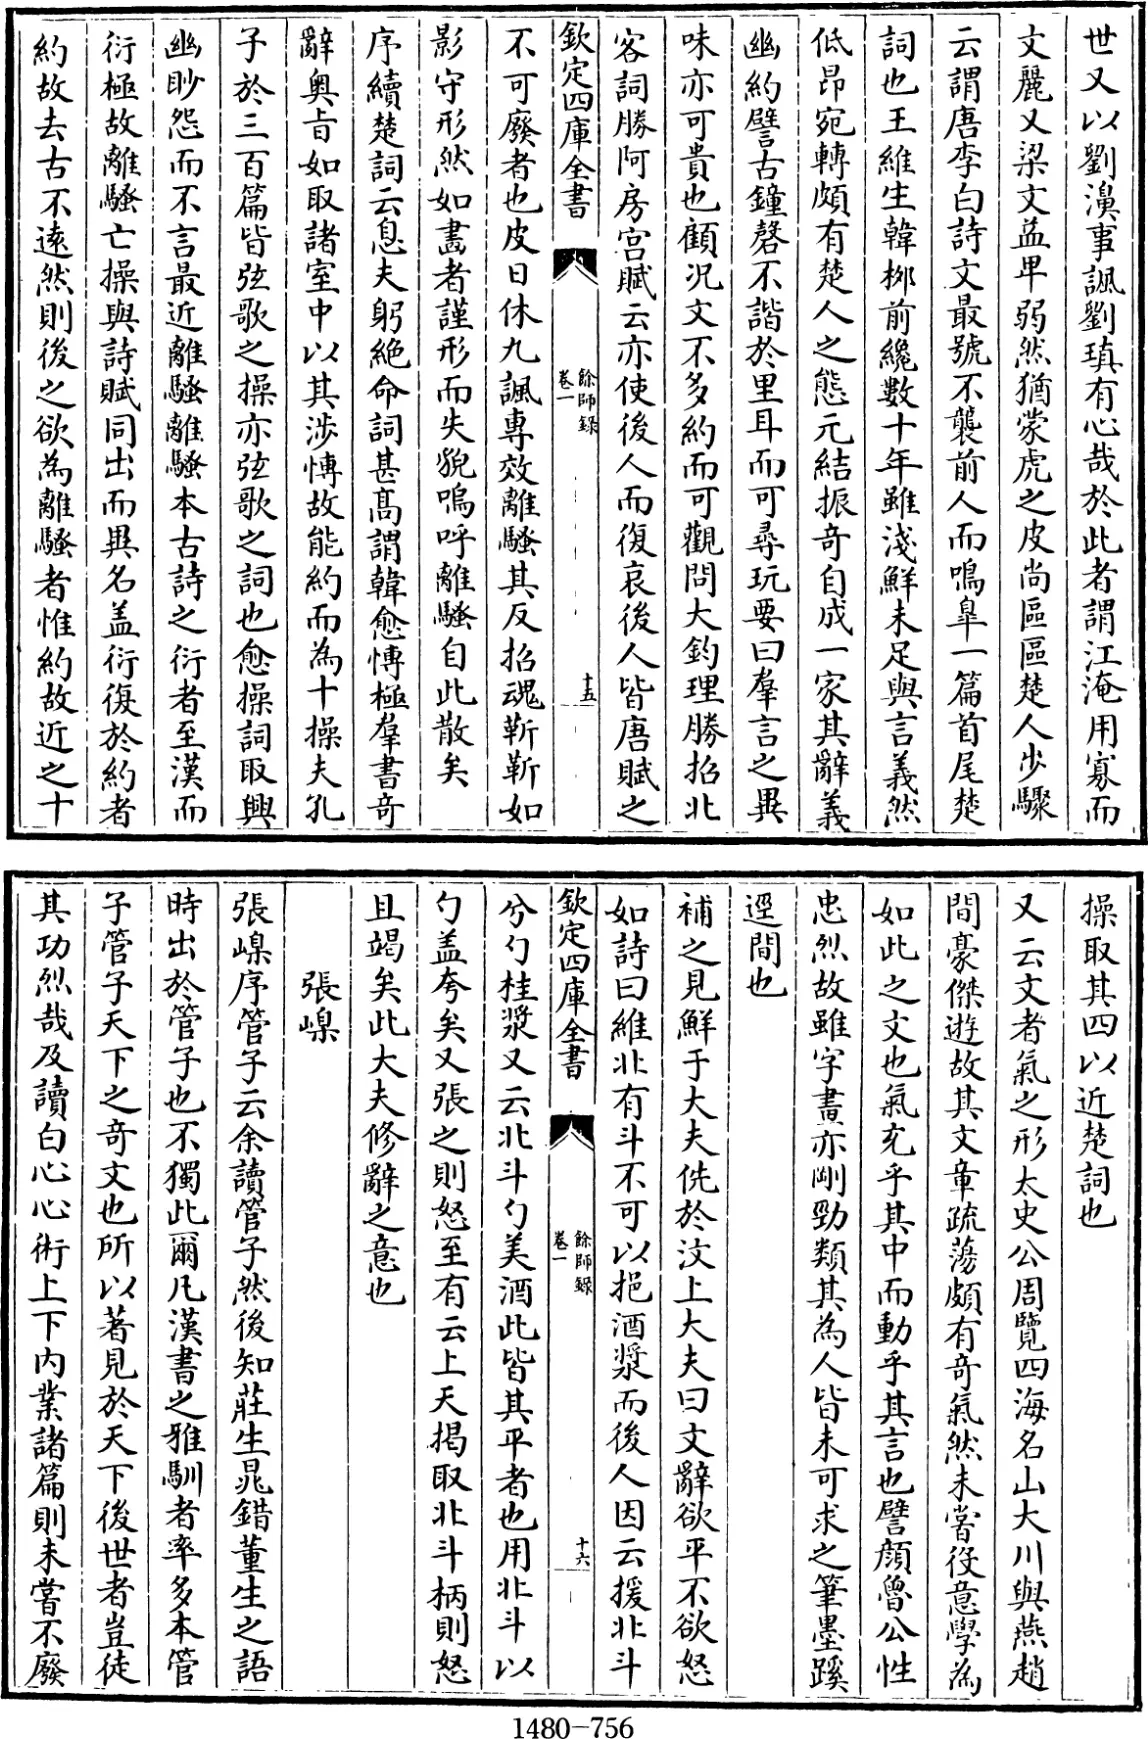 世又以劉濞事諷劉瑱有心哉於此者謂江淹用寡而
文麗又梁文益卑弱然猶蒙虎之皮尚區區楚人步驟
云謂唐李白詩文最號不襲前人而鳴臯一篇首尾楚
詞也王維生韓桞前纔數十年雖淺鮮未足與言義然
低昂宛轉頗有楚人之態元結振竒自成一家其辭義
幽約譬古鐘磬不諧於里耳而可尋玩要曰羣言之異
味亦可貴也顧况文不多約而可觀問大鈞理勝招北
客詞勝阿房宫賦云亦使後人而復哀後人皆唐賦之
欽定四庫全書
餘師録
卷一
十五
不可廢者也皮日休九諷專效離騷其反招魂靳靳如
影守形然如畫者謹形而失貌嗚呼離騷自此散矣
序續楚詞云息夫躬絶命詞甚髙謂韓愈愽極羣書竒
辭奥旨如取諸室中以其涉愽故能約而為十操夫孔
子於三百篇皆弦歌之操亦弦歌之詞也愈操詞取興
幽眇怨而不言最近離騷離騷本古詩之衍者至漢而
衍極故離騷亡操與詩賦同出而異名盖衍復於約者
約故去古不逺然則後之欲為離騷者惟約故近之十
操取其四以近楚詞也
又云文者氣之形太史公周覽四海名山大川與燕趙
間豪傑遊故其文章疏蕩頗有竒氣然未嘗役意學為
如此之文也氣充乎其中而動乎其言也譬顔魯公性
忠烈故雖字畫亦剛勁類其為人皆未可求之筆墨蹊
逕間也
補之見鮮于大夫侁於汶上大夫曰文辭欲平不欲怒
如詩曰維北有斗不可以挹酒漿而後人因云援北斗
欽定四庫全書
餘師録
卷一
十六
兮勺桂漿又云北斗勺美酒此皆其平者也用北斗以
勺盖夸矣又張之則怒至有云上天揭取北斗柄則怒
且竭矣此大夫修辭之意也
張嵲
張嵲序管子云余讀管子然後知莊生晁錯董生之語
時出於管子也不獨此爾凡漢書之雅馴者率多本管
子管子天下之竒文也所以著見於天下後世者豈徒
其功烈哉及讀白心心術上下内業諸篇則未嘗不廢
1480-756